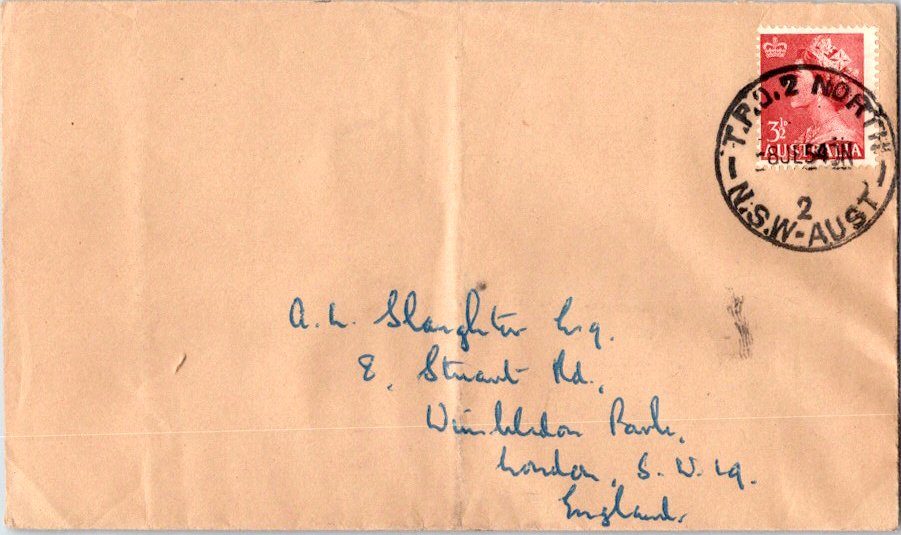 T.P.O.2 NORTH
3½D
AUSTRALIA
8JE54
2
N.S.W-AUST
A. L. Slaughter Esq.
8, Stuart Rd.,
Wimbledon Park,
London, S.W.19.
England.